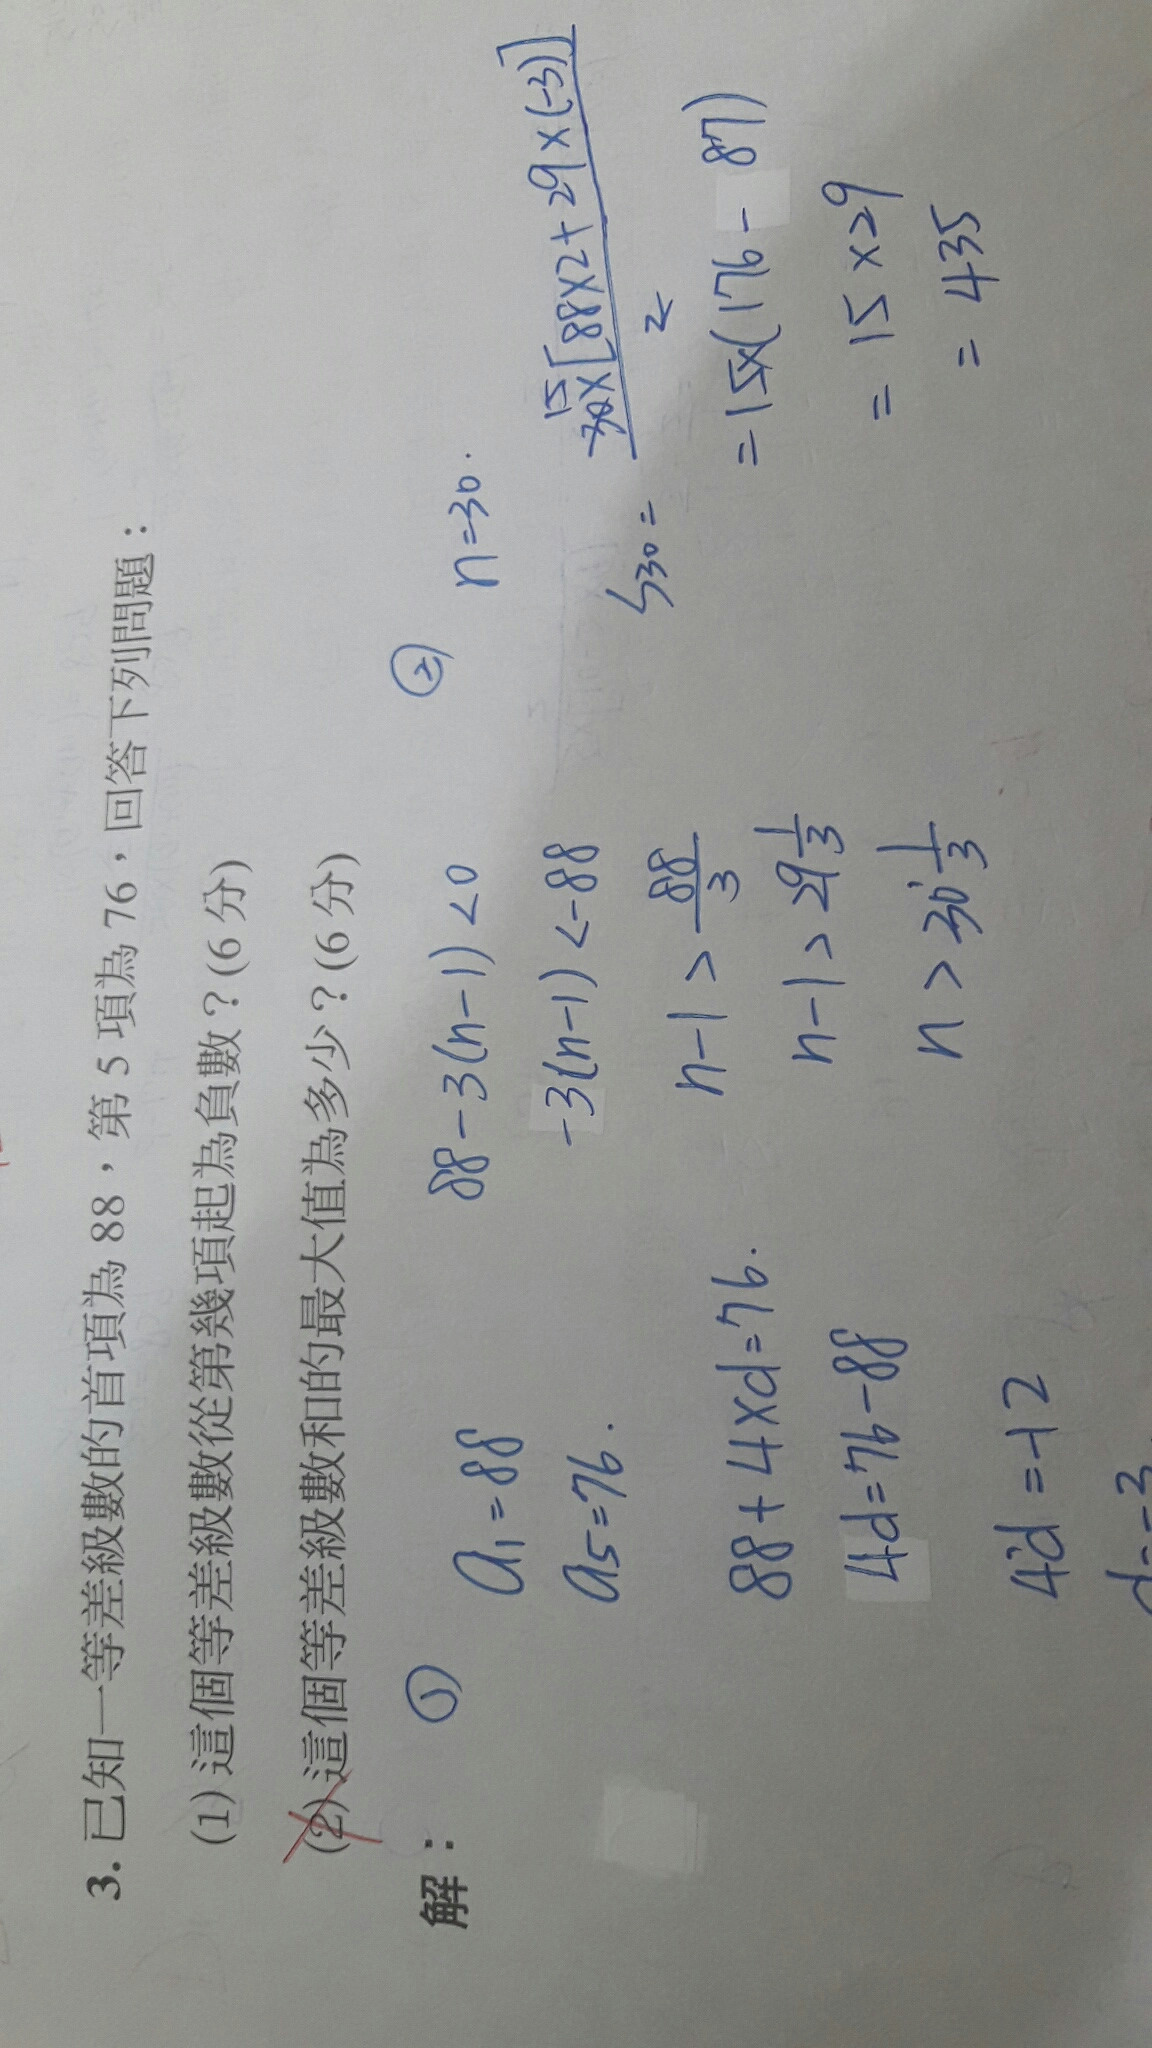 3. 已知一等差級數的首項為 88，第 5 項為 76，回答下列問題：
(1) 這個等差級數從第幾項起為負數？(6 分)
(2) 這個等差級數和的最大值為多少？(6 分)
解：
①
a₁=88
a₅=76.
88+4×d=76.
4d=76-88
4d=-12
d=-3
88-3(n-1)<0
-3(n-1)<-88
n-1>88/3
n-1>29 1/3
n>30 1/3
②
n=30.
S₃₀= 30×[88×2+29×(-3)] / 2
15
=15×(176-87)
=15×29
=435